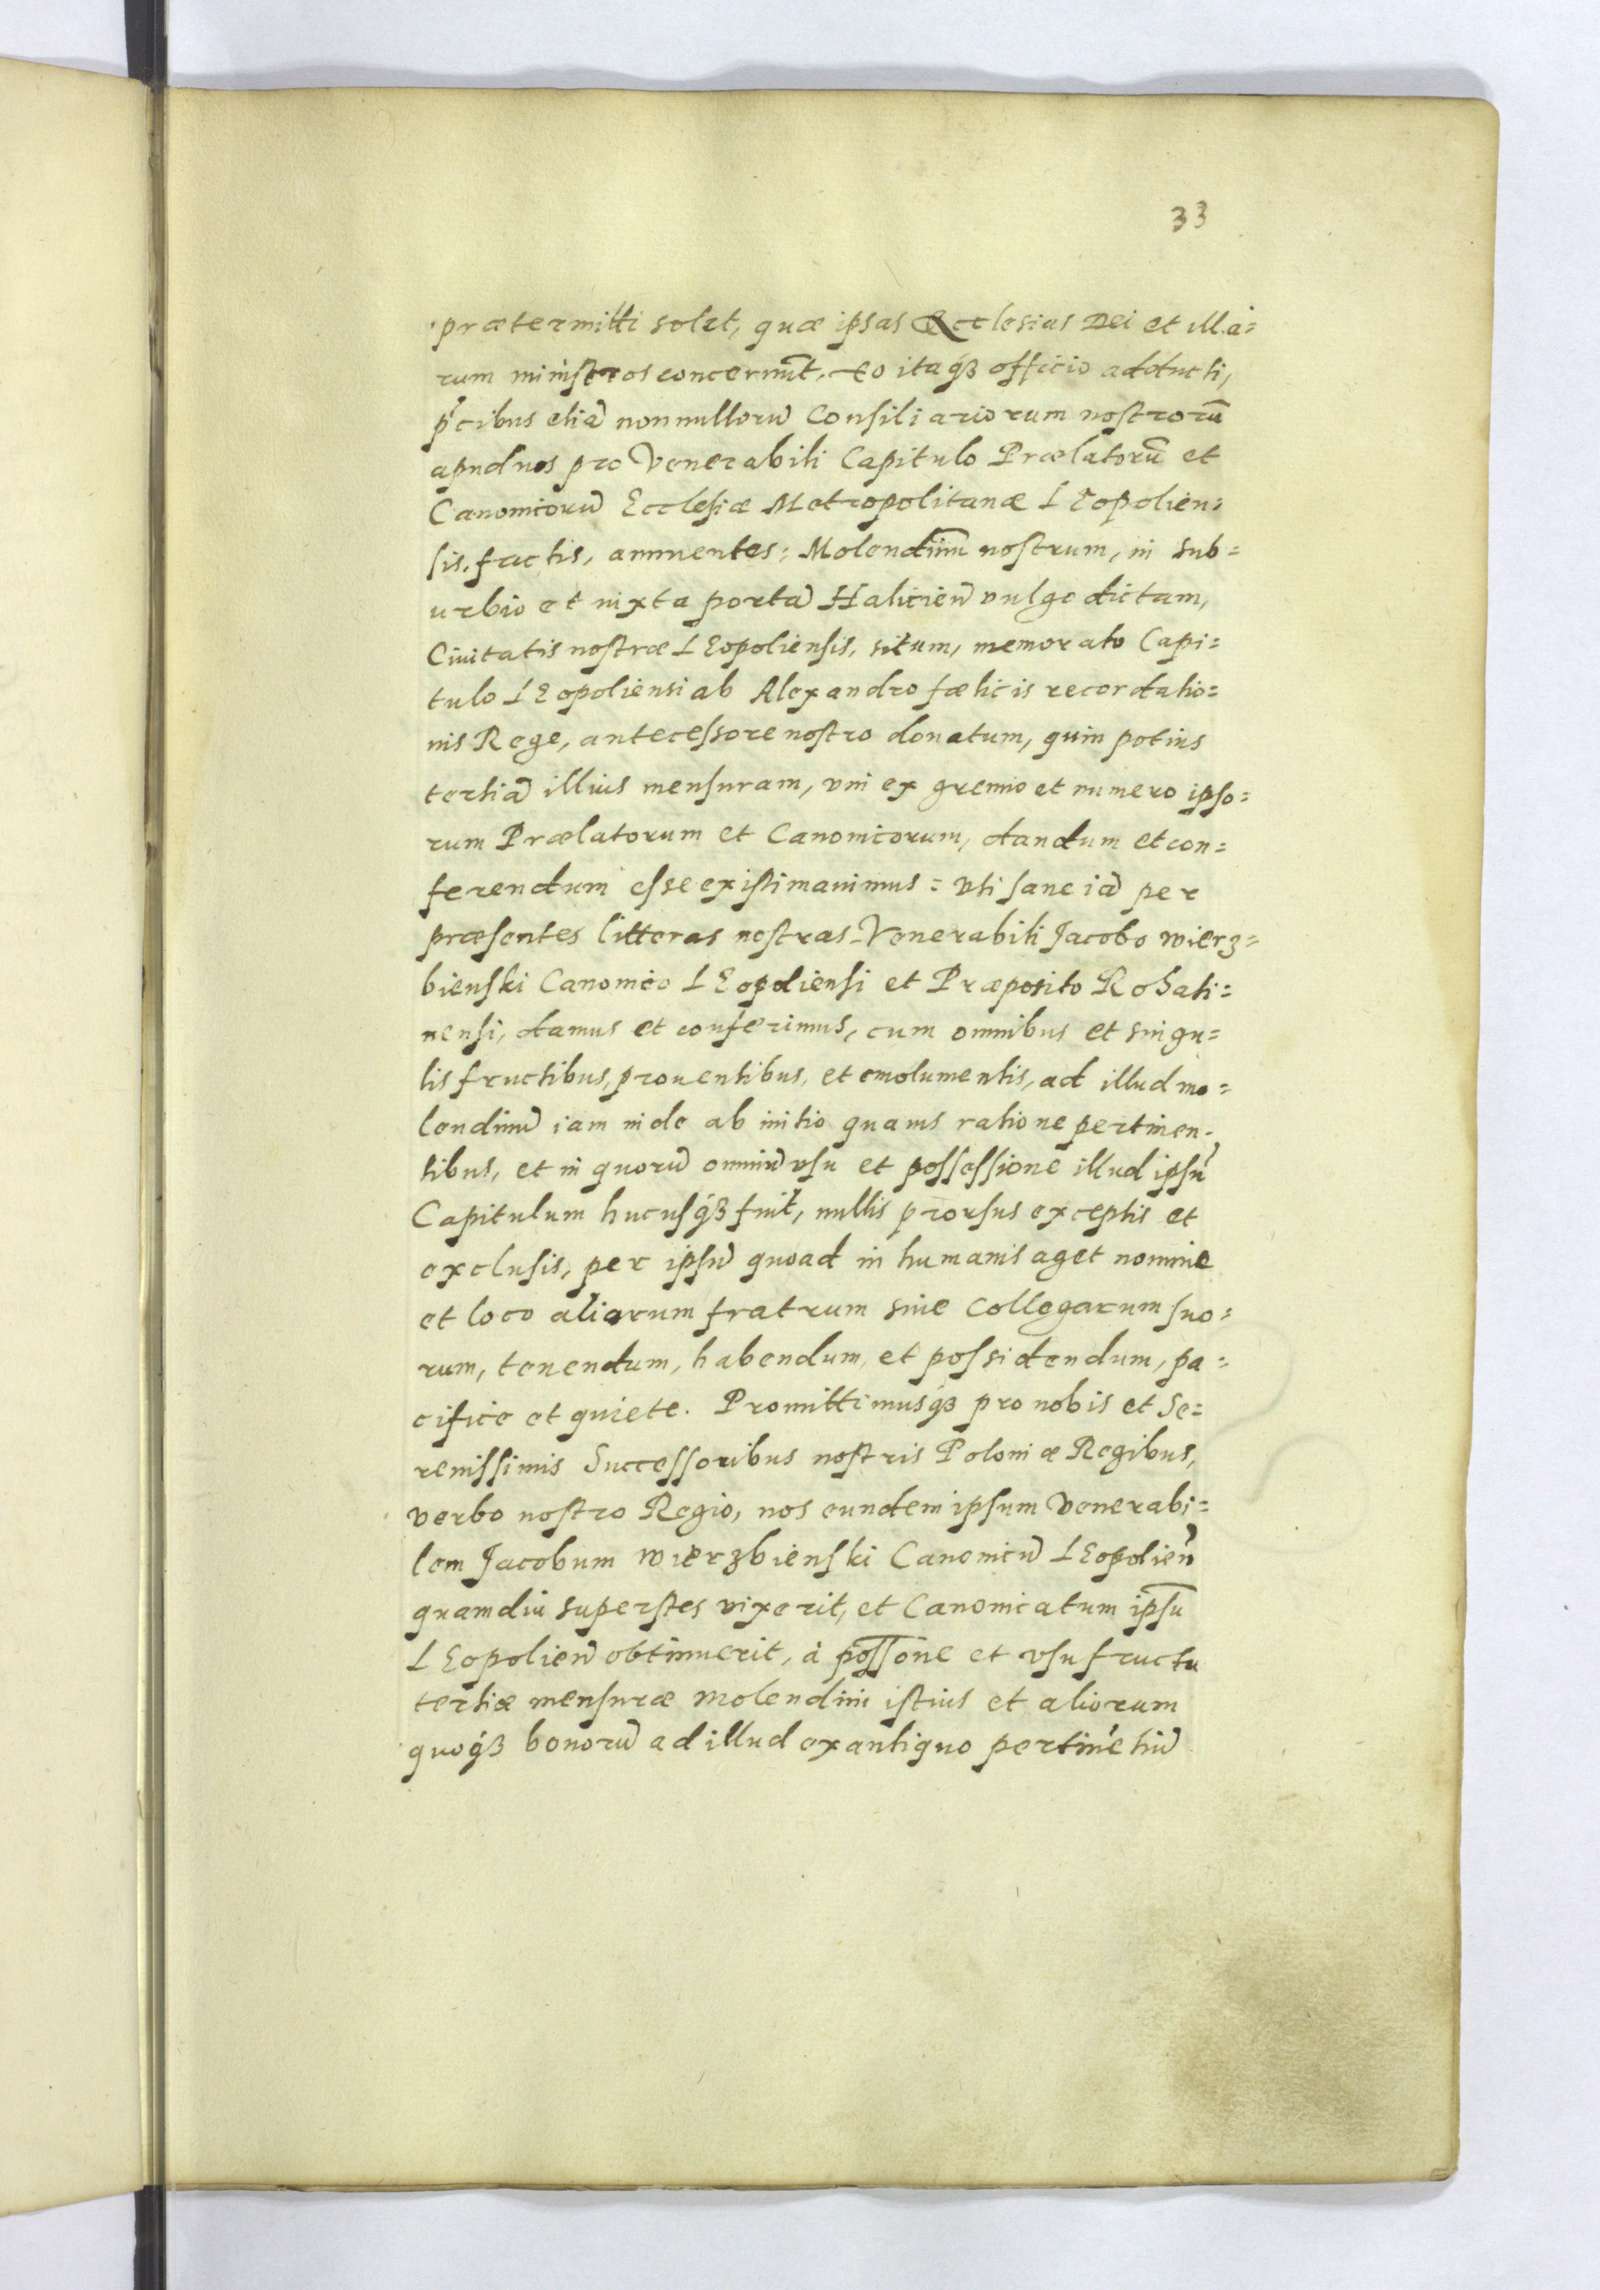 33
prætermitti solet, quæ ipsas Ecclesias Dei et illa=
rum ministros concernūt. Eo itaq́ꝫ officio adducti,
p̃cibus etiã nonnullorũ Consiliariorum nostrorū
apud nos pro Venerabili Capitulo Prælatorū et
Canonicorũ Ecclesiæ Metropolitanæ LEopolien=
sis. factis, annuentes: Molendinū nostrum, in sub=
urbio et iuxta portã Halicieñ vulgo dictam,
Ciuitatis nostræ LEopoliensis, situm, memorato Capi=
tulo LEopoliensi ab Alexandro fœlicis recordatio=
nis Rege, antecessore nostro donatum, quin potius
tertiã illius mensuram, vni ex gremio et numero ipso=
rum Prælatorum et Canonicorum, dandum et con=
ferendum esse existimauimus: vti sane iã per
præsentes litteras nostras Venerabili Jacobo Wierz=
bienski Canonico LEopoliensi et Præposito Rohati=
nensi, damus et conferimus, cum omnibus et singu=
lis fructibus, prouentibus, et emolumentis, ad illud mo=
lendinũ iam inde ab initio quauis ratione pertinen=
tibus, et in quorũ omniũ vsu et possessione illud ipsũ
Capitulum hucusq́ꝫ fuit, nullis prorsus exceptis et
exclusis, per ipsũ quoad in humanis aget nomine
et loco aliorum fratrum siue Collegarum suo=
rum, tenendum, habendum, et possidendum, pa=
cifice et quiete. Promittimusq́ꝫ pro nobis et Se=
renissimis Successoribus nostris Poloniæ Regibus,
verbo nostro Regio, nos eundem ipsum Venerabi=
lem Jacobum Wierzbienski Canonicũ LEopolieñ
quamdiu superstes vixerit, et Canonicatum ipsū
LEopolieñ obtinuerit, à poss̄one et vsufructu
tertiæ mensuræ molendini istius et aliorum
quoq́ꝫ bonorũ ad illud ex antiquo pertinẽtiũ